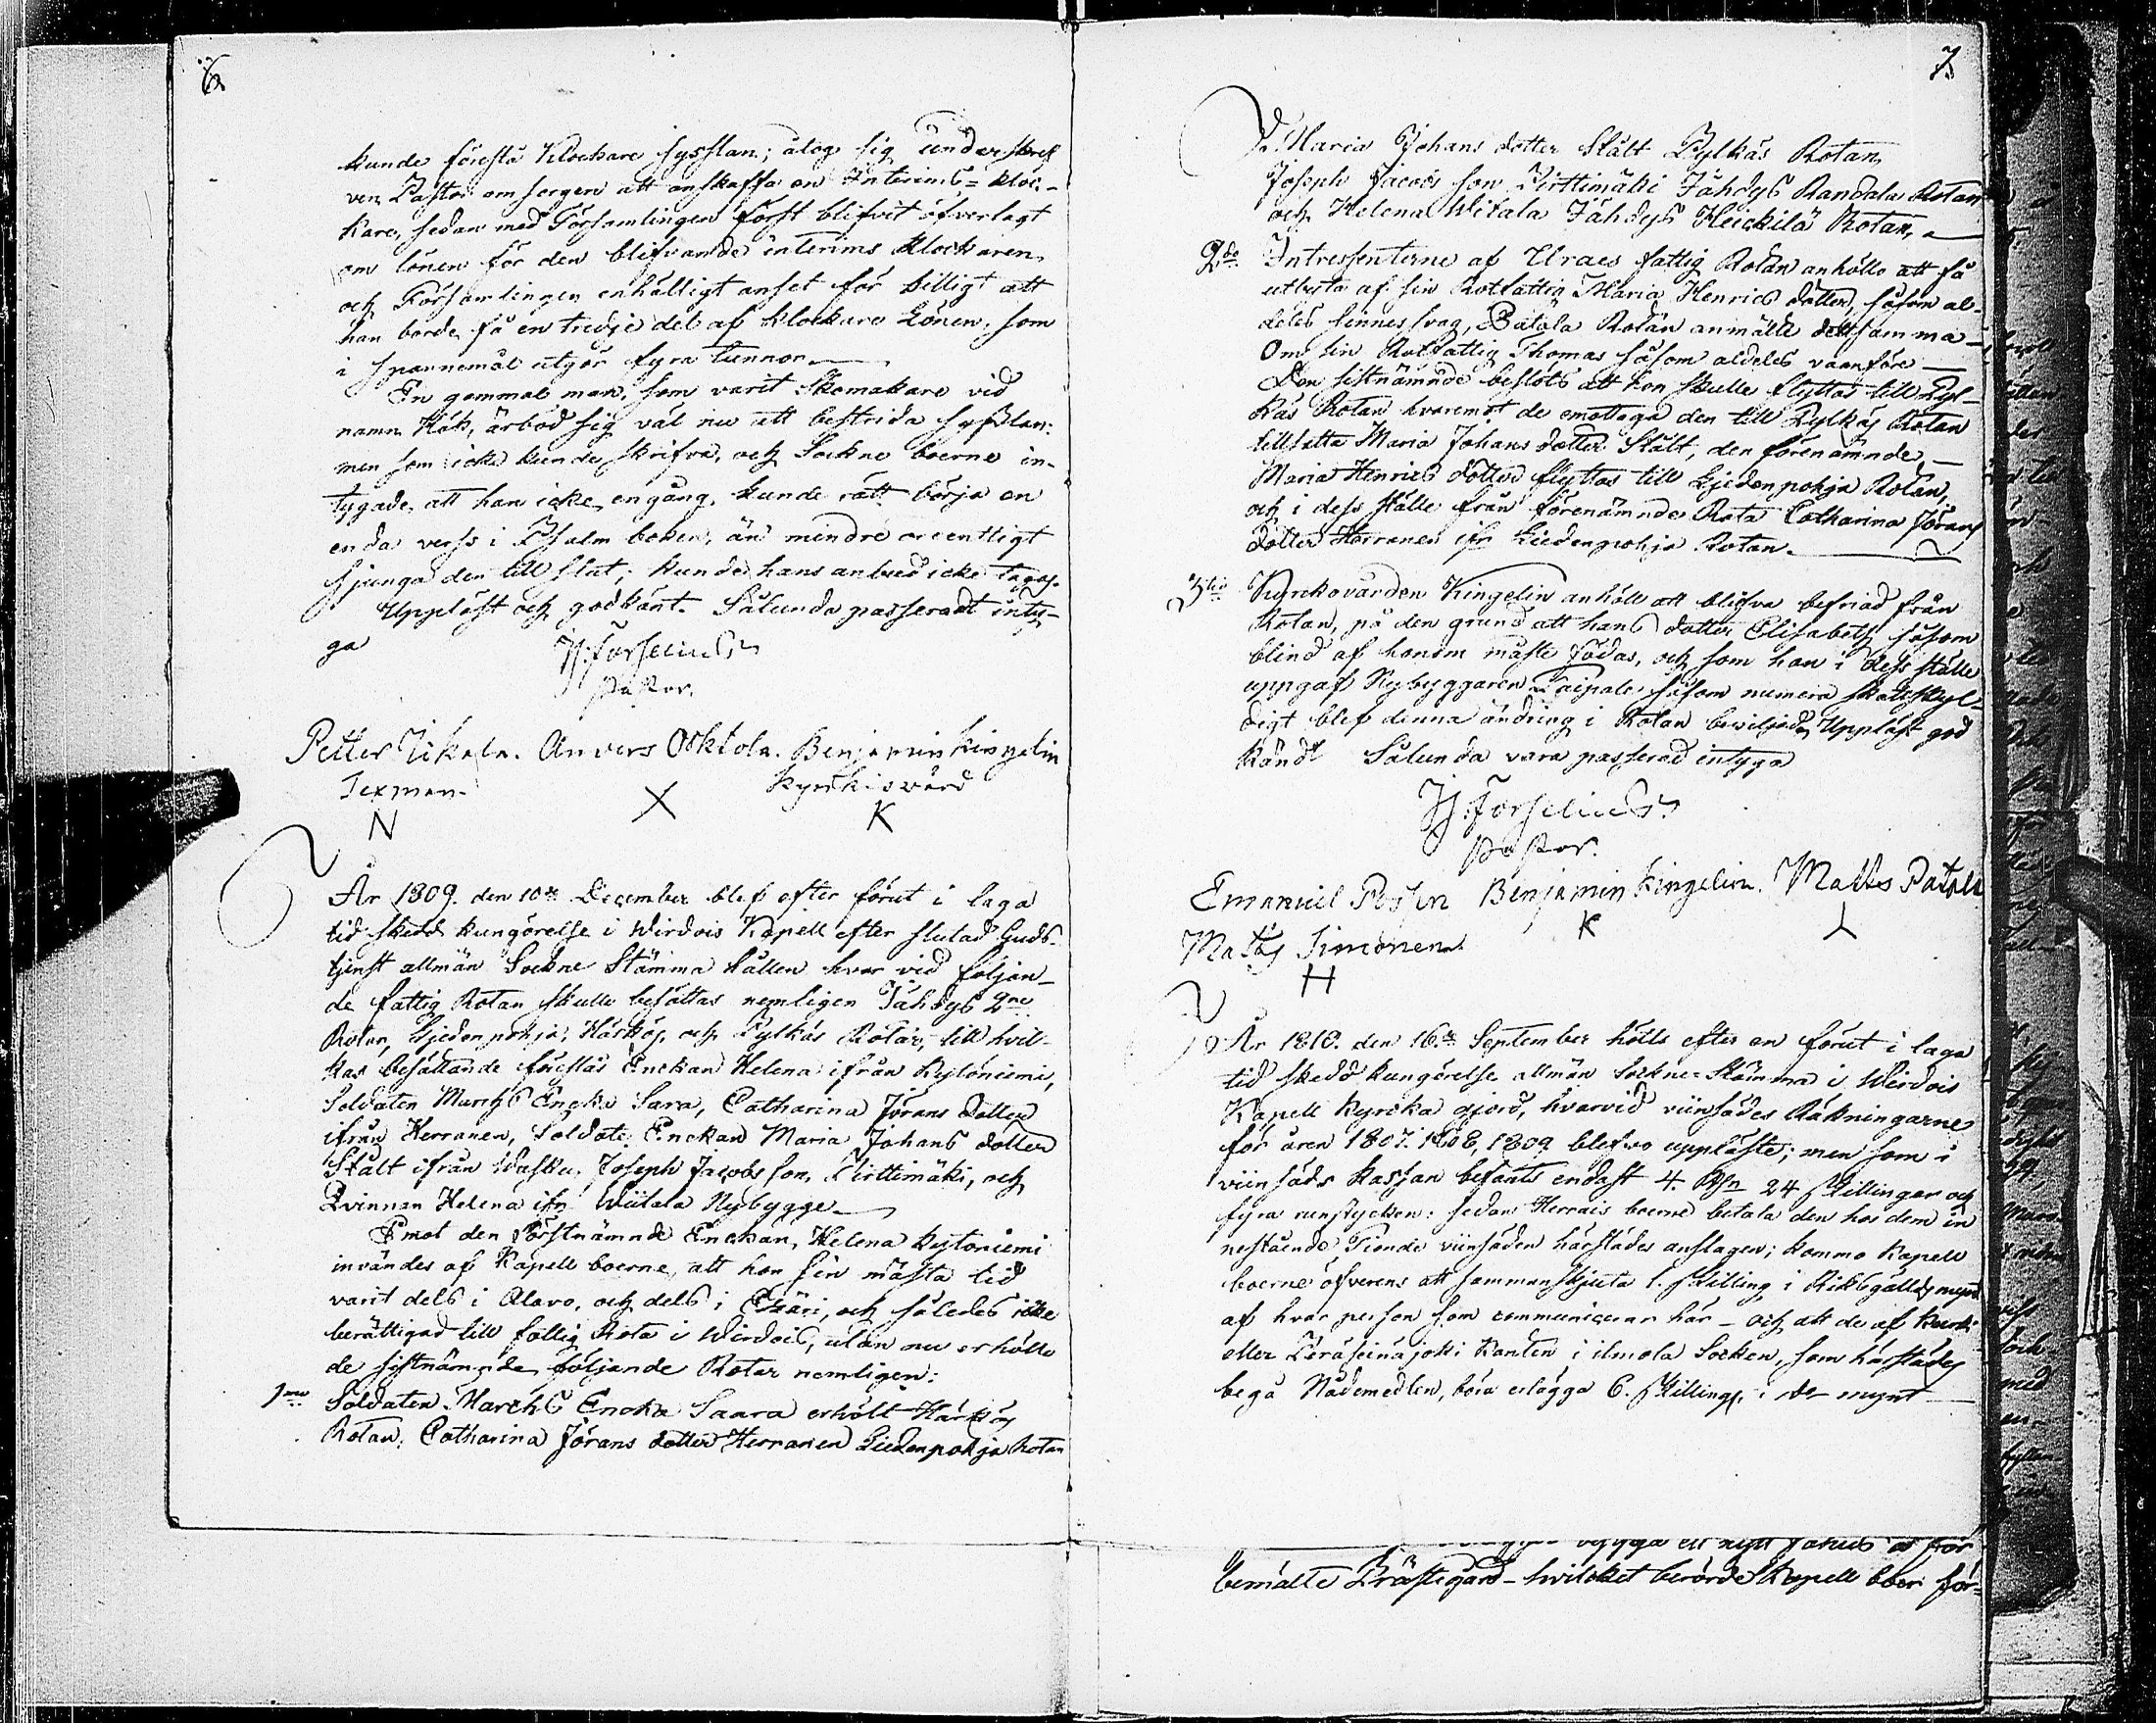 6.
kunde förestå Klockare sysslan; åtog sig underskref
ven Pastor omsorgen att anskaffa en Interims= kloc-
kare, sedan med Församlingen först blifvit öfverlagt
om lönen för den blifvande interims klockaren,
och Församlingen enhälligt anset för billigt att
han borde få en tredje del af klockare Lönen, som
i spannemål utgör fyra tunnor.
En gammal man, som varit Skomakare vid
namn Hök, årbod sig väl nu att bestrida sysslan:
men som icke kunde skrifva, och Sockne boerne in-
tygade, att han icke en gång kunde rätt börja en
enda verss i Psalm boken, än mindre ordentligt
sjunga den till slut; kunde hans anbud icke tagas.
Uppläst och godkänt. Sålunda passeradt inty-
ga
JJ: Forselius
Pastor.
Petter Jikala. Anders Ocktola. Benjamin Kingelin
Sexman. Kyrkiovärd
N X K
År 1809. den 10de December blef efter förut i laga
tid skedd kungörelse i Wirdois Kapell efter slutad Guds-
tjenst allmän Sockne Stämma hållen hvar vid följan-
de fattig Rotan skulle besättas nemligen Jähdys 2ne
Rotar, Liedenpohja, Härkös, och Pylkäs Rotar, till hvil-
kas besättande föreslås Enckan Helena ifrån Kytöniemi,
Soldaten Marchs Encka Sara, Catharina Jörans dotter
ifrån Herranen, Soldate Enckan Maria Johans dotter
Stålt ifrån Wasku, Joseph Jacobs son, Pirttimäki, och
Qvinnan Helena ifr Wiitala Nybygge
Emot den Förstnämnde Enckan, Helena Kytöniemi
invändes af Kapell boerne, att hon sin mästa tid
varit dels i Alavo, och dels i Etzäri, och således icke
berättigad till fattig Rota i Wirdois, utan nu erhölle
de sistnämnde följande Rotar nemligen:
1mo Soldaten Marchs Encka Saara erhölt Härkös
Rotan, Catharina Jörans dotter Herranen Liedenpohja Rotan
7.
Maria Johans dotter Stålt Pylkäs Rotan,
Joseph Jacobs son Pirttimäki Jähdys Randala Rotan
och Helena Witala Jähdys Heickilä Rotan,
2do Intressenterne af Uraes fattig Rotan anhöllo att få
utbyta af sin Rotfattig Maria Henrics dotter, såsom al-
deles sinnessvag, Patala Rotan anmälte dettsamma
Om sin Rotfattig Thomas såsom aldeles vanföre
Den sistnämnde beslöts att hon skulle flyttas till Pyl-
käs Rotan hvaremot de emottaga den till Pylkäs Rotan
tillsatta Maria Johans dotter Stålt, den förenämnde
Maria Henrics dotter flyttas till Liedenpohja Rotan,
och i dess ställe från förenämnde Rota Catharina Jörans
dotter Herranen ifr Liedenpohja Rotan.
3tio Kyrkovärden Kingelin anhöll att blifva befriad från
Rotan, på den grund att hans dotter Elisabeth såsom
blind af honom måste födas, och som han i dess ställe
uppgaf Nybyggaren Taipale, såsom numera skattskyl-
digt blef denna ändring i Rotan beviljad. Uppläst god
kändt Sålunda vara passerad intyga
JJ: Forselius
Pastor.
Emanuel Benjamin Kingelin. Matts Patala
K
Matts Simonen
H
År 1810. den 16.de September hölts efter en förut i laga
tid skedd kungörelse allmän Sockne-Stämma i Wirdois
Kapell Kyrcka gjord, hvarvid viinsädes Räkningarne
för åren 1807. 1808, 1809 blefvo uppläste; men som i
viinsäds kassan befants endast 4. Rsn 24 skillingar och
fyra runstycken: sedan Herrais boerne betala den hos dem in
nestående Tionde viinsäden härstädes anslagen; kommo Kapell
boerne öfverens att sammanskjuta 1. skilling i Riksgälds mynt
af hvar person som communicerar här - och att de af Kurki
eller Peräseinäjoki kanten i ilmola Socken, som härstädes
begå Nådemedlen, böra erlägga 6. skilling, i d:o mynt
bygga ett nytt
bemälte Prästegård - hvilcket berörde Kapell boer för-